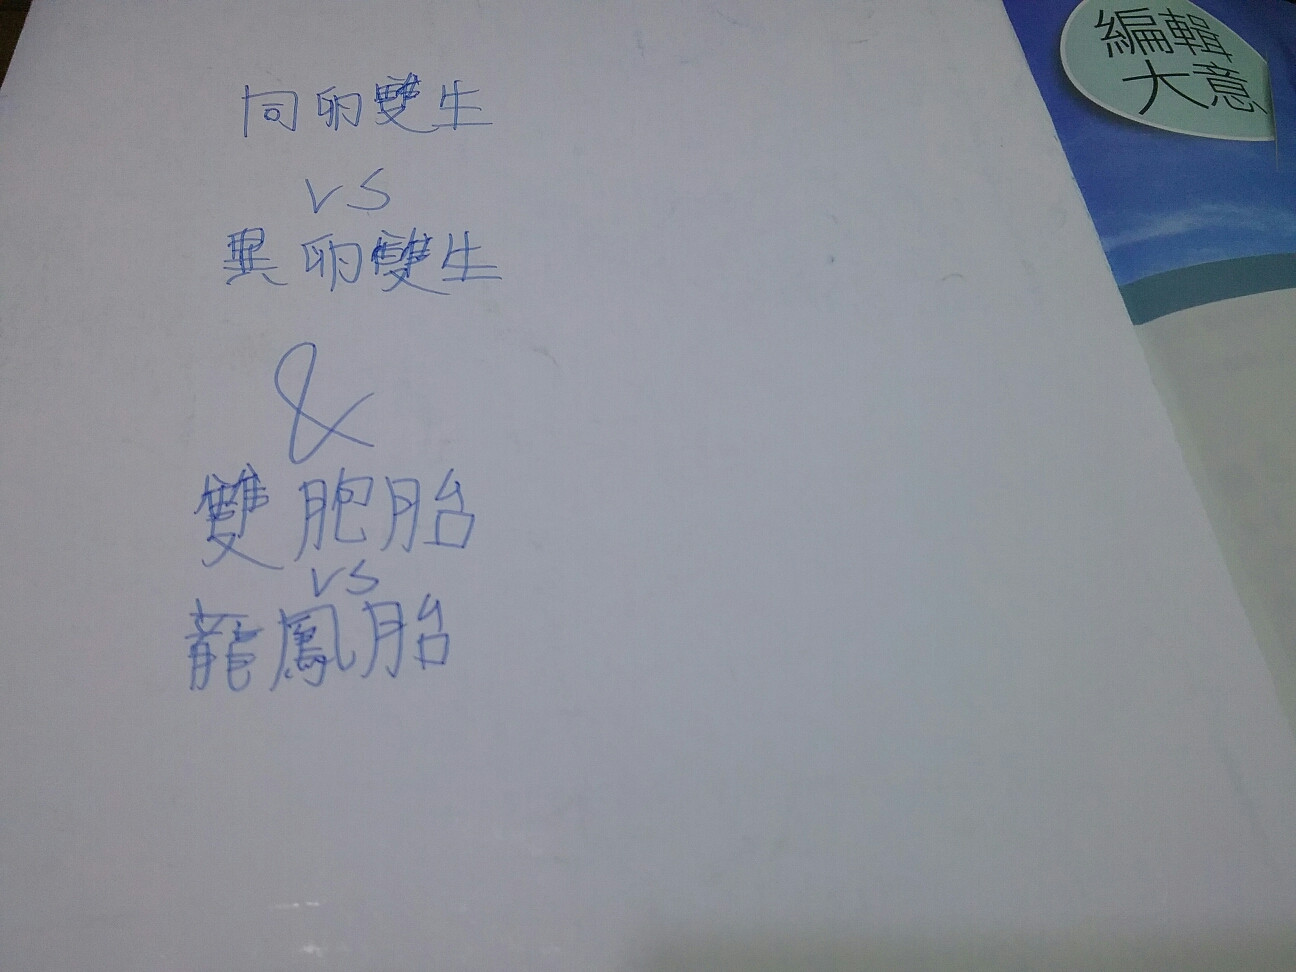 同卵雙生
vs
異卵雙生
&
雙胞胎
vs
龍鳳胎
編輯
大意